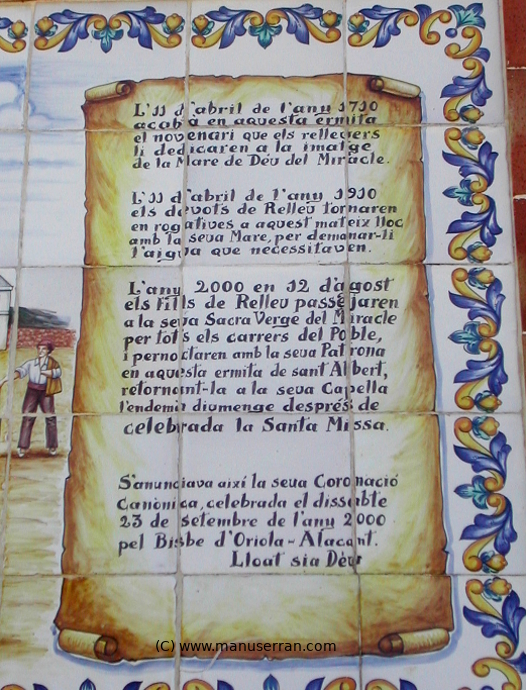 L'11 d'abril de l'any 1710
acabà en aquesta ermita
el novenari que els rellevers
li dedicaren a la imatge
de la Mare de Déu del Miracle.
L'11 d'abril de l'any 1910
els devots de Relleu tornaren
en rogatives a aquest mateix lloc
amb la seua Mare, per demanar-li
l'aigua que necessitaven.
L'any 2000 en 12 d'agost
els fills de Relleu passejaren
a la seua Sacra Verge del Miracle
per tots els carrers del Poble,
i pernoctaren amb la seua Patrona
en aquesta ermita de sant Albert,
retornant-la a la seua Capella
l'endemà diumenge després de
celebrada la Santa Missa.
S'anunciava així la seua Coronació
Canònica, celebrada el dissabte
23 de setembre de l'any 2000
pel Bisbe d'Oriola-Alacant.
Lloat sia Déu
(C) www.manuserran.com